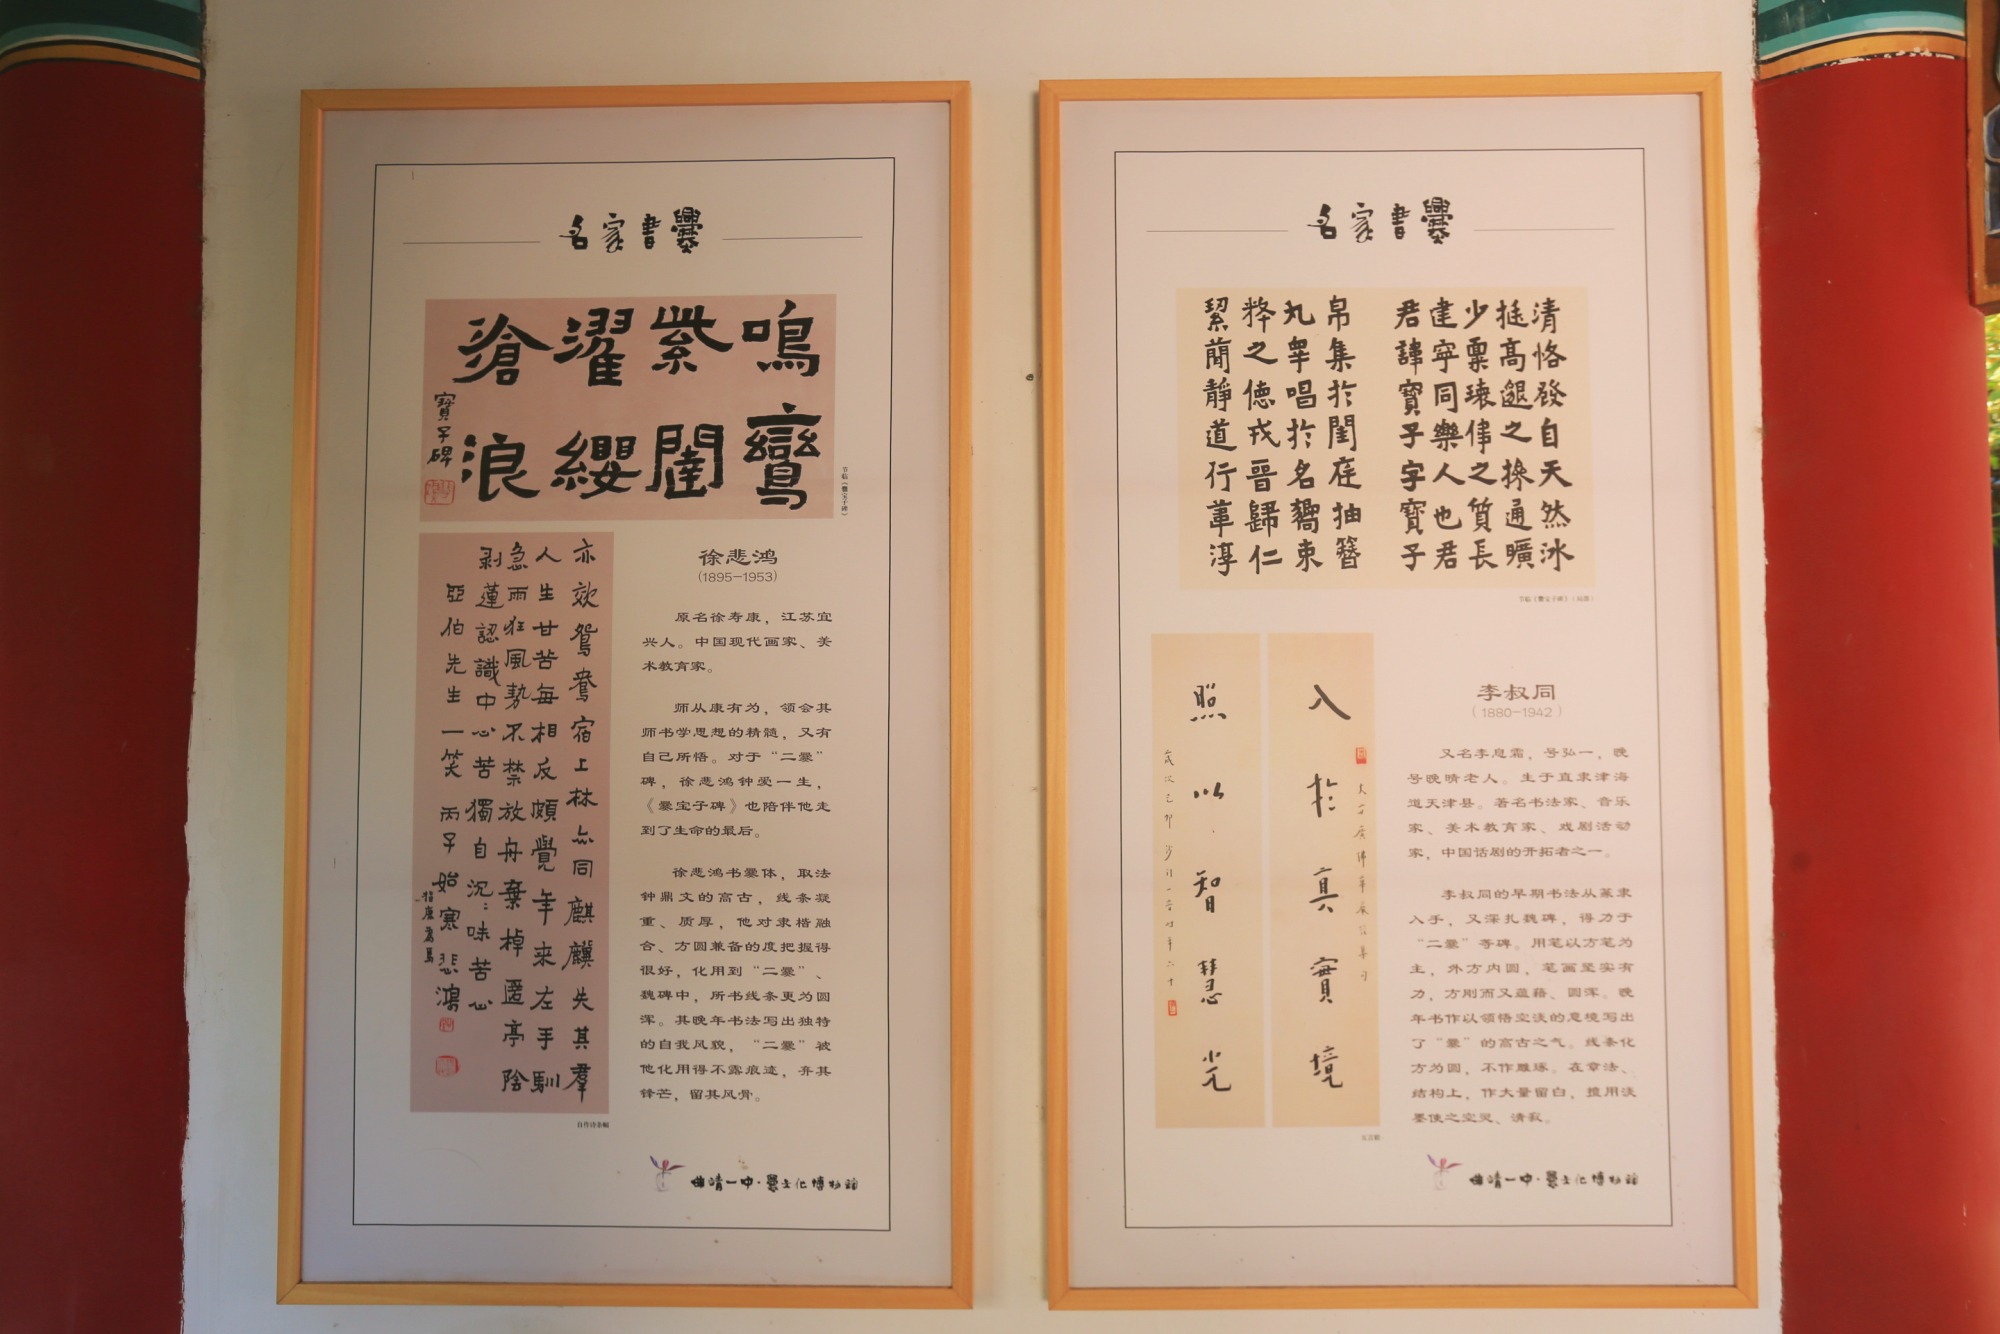 名家書爨
鳴鸞
紫闥
濯纓
滄浪
寶子碑
节临《爨宝子碑》
亦效鴛鴦宿上林亦同麒麟失其羣
人生甘苦每相反頗覺年來左手馴
急雨狂風勢不禁放舟棄棹匿亭陰
剥蓮認識中心苦獨自沉：味苦心
亞伯先生一笑 丙子始寒悲鴻
自作诗条幅
徐悲鸿
(1895-1953)
原名徐寿康，江苏宜
兴人。中国现代画家、美
术教育家。
师从康有为，领会其
师书学思想的精髓，又有
自己所悟。对于“二爨”
碑，徐悲鸿钟爱一生，
《爨宝子碑》也陪伴他走
到了生命的最后。
徐悲鸿书爨体，取法
钟鼎文的高古，线条凝
重、质厚，他对隶楷融
合、方圆兼备的度把握得
很好，化用到“二爨”、
魏碑中，所书线条更为圆
浑。其晚年书法写出独特
的自我风貌，“二爨”被
他化用得不露痕迹，弃其
锋芒，留其风骨。
曲靖一中·爨文化博物馆
名家書爨
清恪發自天然冰
挺高邈之操通曠
少稟瓌偉之質長
建寧同樂人也君
君諱寶子字寶子
帛集於閨庭抽簪
九皋唱於名嚮束
粹之德戎晉歸仁
絜蕳靜道行葦淳
节临《爨宝子碑》（局部）
入於真實境
照以智慧光
歲次己卯
五言联
李叔同
（1880-1942）
又名李息霜，号弘一，晚
号晚晴老人。生于直隶津海
道天津县。著名书法家、音乐
家、美术教育家、戏剧活动
家，中国话剧的开拓者之一。
李叔同的早期书法从篆隶
入手，又深扎魏碑，得力于
“二爨”等碑。用笔以方笔为
主，外方内圆，笔画坚实有
力，方刚而又蕴藉、圆浑。晚
年书作以领悟空淡的意境写出
了“爨”的高古之气。线条化
方为圆，不作雕琢。在章法、
结构上，作大量留白，擅用淡
墨使之空灵、清寂。
曲靖一中·爨文化博物馆